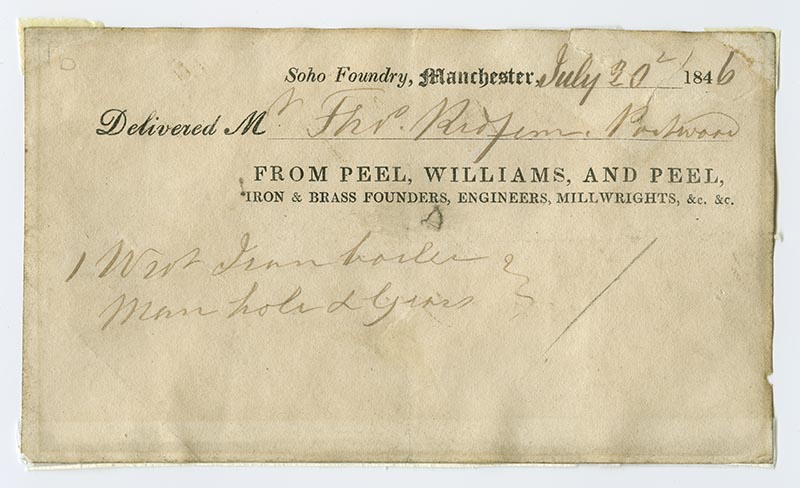 Soho Foundry, Manchester, July 20 1846
Delivered Mr Thos. Redfern. Portwood
FROM PEEL, WILLIAMS, AND PEEL,
IRON & BRASS FOUNDERS, ENGINEERS, MILLWRIGHTS, &c. &c.
1 Wrot Iron boiler
Man hole & Gears